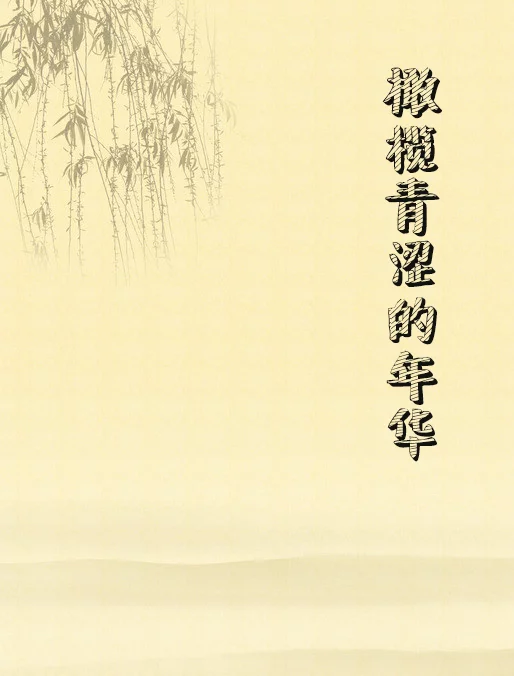 橄榄青涩的年华